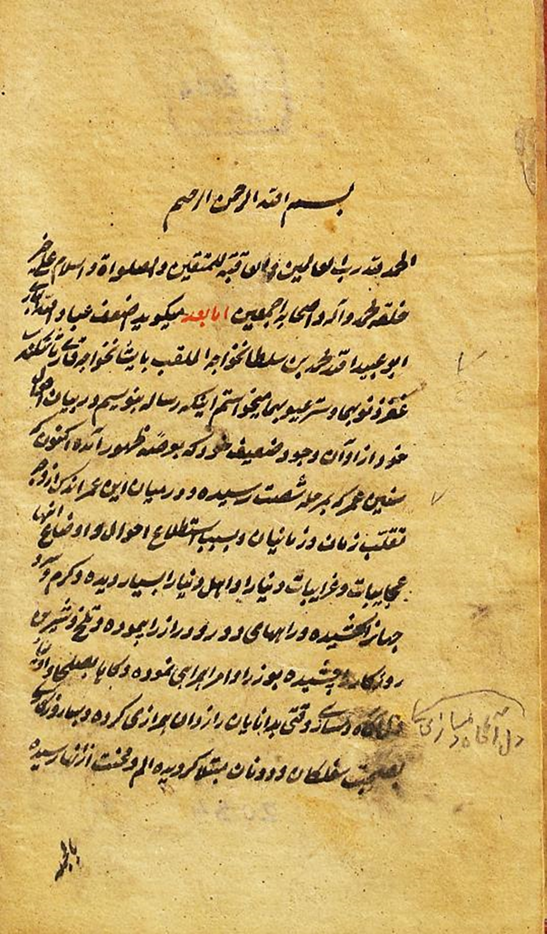 بسم الله الرحمن الرحیم
الحمد لله رب العالمین والعاقبة للمتقین والصلواة والسلام علی خیر
خلقه محمد وآله واصحابه اجمعین اما بعد میکوید اضعف عباد الله
ابو عبید الله محمد بن سلطانخواجه الملقب بایشانخواجه قاری تاشکندی
غفر ذنوبهما وستر عیوبهما میخواستم اینکه رساله بنویسم در بیان احوال
خود از اوان وجود ضعیف خود که بوصه ظهور آمده اکنون که
سنین عمر که بمرحله شصت رسیده و در میان این عمر اندک از وجه
تقلب زمان و زمانیان و بسبب استطلاع احوال و اوضاع انها
عجایبات و غرایبات دنیا را و اهل دنیا را بسیار دیده و کرم و سرد
جهانرا کشیده و راههای دور و دراز را پیموده و تلخ و شیرین
روزکار را چشیده بوزرا و امرا همراهی نموده و کاها بصلحا و
دل اکاه و بسازی وقتی بدانایان رازدان همرازی کرده و بسا روزکاری
بصحبت سفلکان و دونان مبتلا کردیده الم و محنت از انها رسیده
دل آکاه